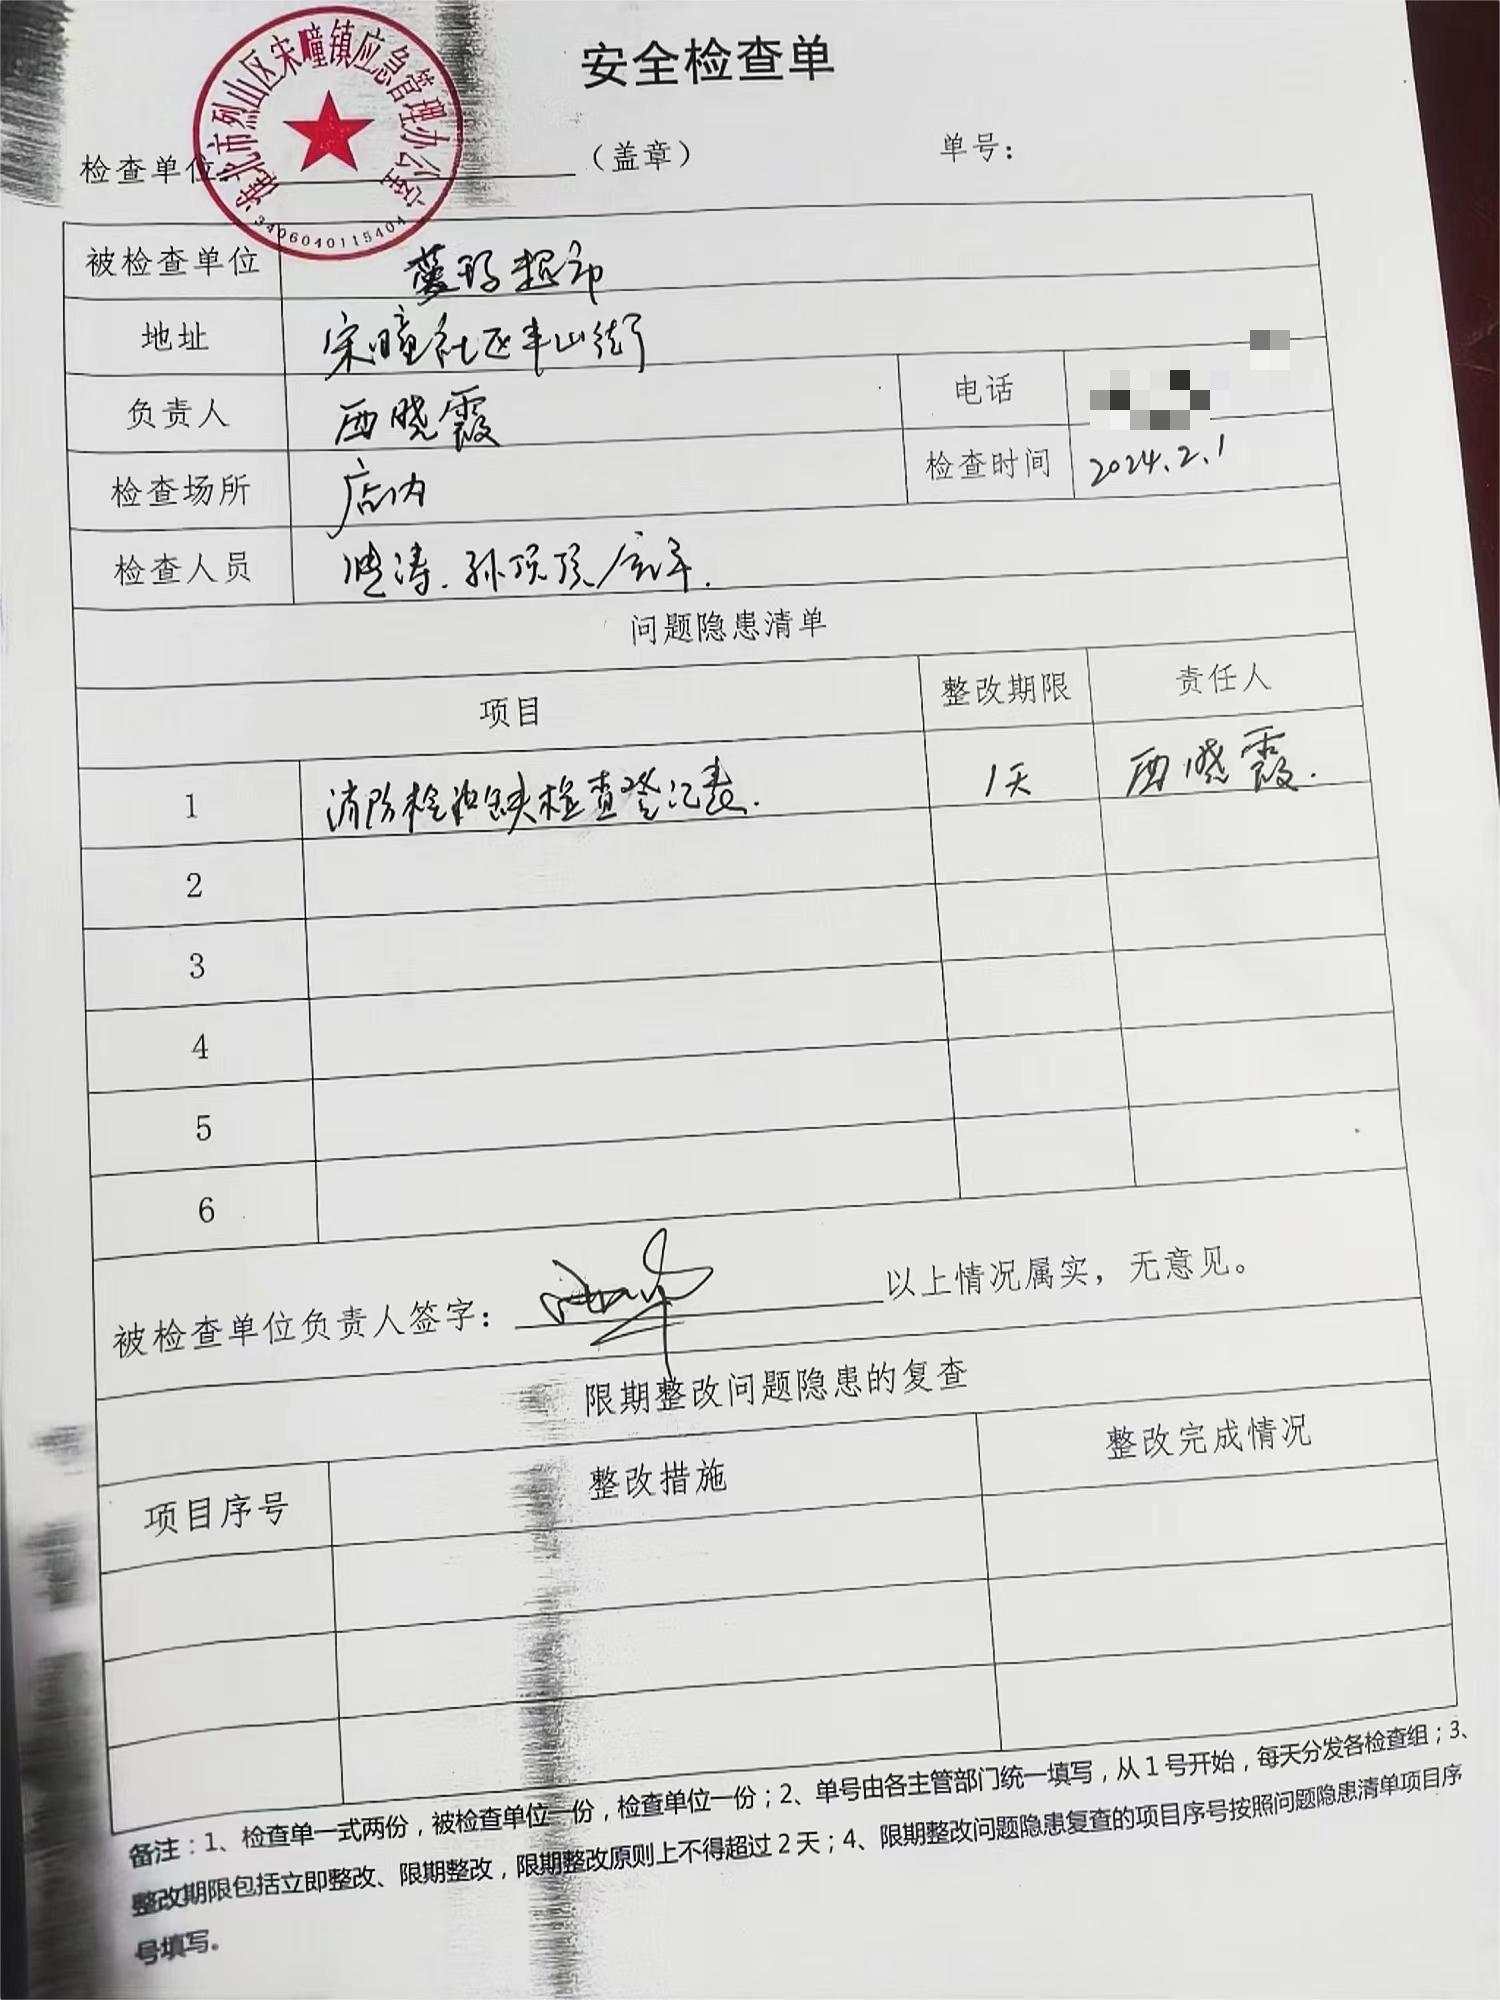 安全检查单
淮北市烈山区宋疃镇应急管理办公室
3406040115404
检查单位: （盖章） 单号：
被检查单位 超市
地址 宋疃社区丰山街
负责人 西晓霞 电话
检查场所 店内 检查时间 2024.2.1
检查人员 孙顶顶
问题隐患清单
项目 整改期限 责任人
1 消防栓缺检查登记表. 1天 西晓霞.
2
3
4
5
6
被检查单位负责人签字： 以上情况属实，无意见。
限期整改问题隐患的复查
项目序号 整改措施 整改完成情况
备注：1、检查单一式两份，被检查单位一份，检查单位一份；2、单号由各主管部门统一填写，从1号开始，每天分发各检查组；3、
整改期限包括立即整改、限期整改，限期整改原则上不得超过2天；4、限期整改问题隐患复查的项目序号按照问题隐患清单项目序
号填写。